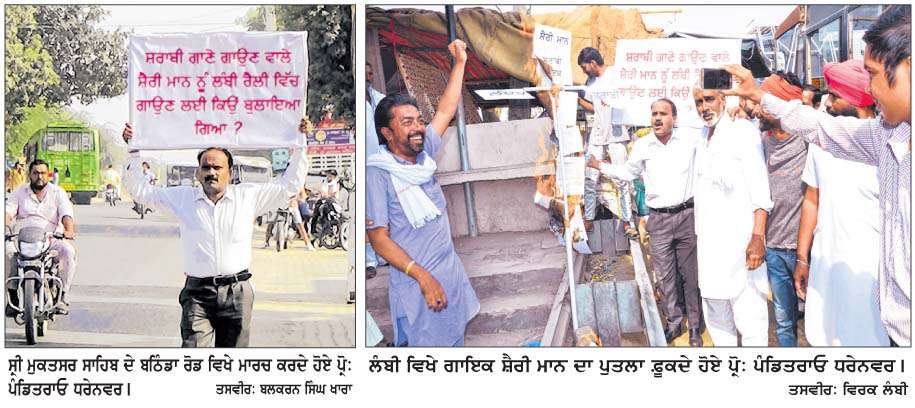 ਸ਼ਰਾਬੀ ਗਾਣੇ ਗਾਉਣ ਵਾਲੇ
ਸ਼ੈਰੀ ਮਾਨ ਨੂੰ ਲੰਬੀ ਰੈਲੀ ਵਿੱਚ
ਗਾਉਣ ਲਈ ਕਿਉਂ ਬੁਲਾਇਆ
ਗਿਆ ?
ਸ਼੍ਰੀ ਮੁਕਤਸਰ ਸਾਹਿਬ ਦੇ ਬਠਿੰਡਾ ਰੋਡ ਵਿਖੇ ਮਾਰਚ ਕਰਦੇ ਹੋਏ ਪ੍ਰੋ:
ਪੰਡਿਤਰਾਓ ਧਰੇਨਵਰ।
ਤਸਵੀਰ: ਬਲਕਰਨ ਸਿੰਘ ਖਾਰਾ
ਸ਼ੈਰੀ ਮਾਨ
ਸ਼ਰਾਬੀ ਗਾਣੇ ਗਾਉਣ ਵਾਲੇ
ਸ਼ੈਰੀ ਮਾਨ ਨੂੰ ਲੰਬੀ
ਗਾਉਣ ਲਈ ਕਿਉਂ
ਲੰਬੀ ਵਿਖੇ ਗਾਇਕ ਸ਼ੈਰੀ ਮਾਨ ਦਾ ਪੁਤਲਾ ਫ਼ੂਕਦੇ ਹੋਏ ਪ੍ਰੋ: ਪੰਡਿਤਰਾਓ ਧਰੇਨਵਰ।
ਤਸਵੀਰ: ਵਿਰਕ ਲੰਬੀ